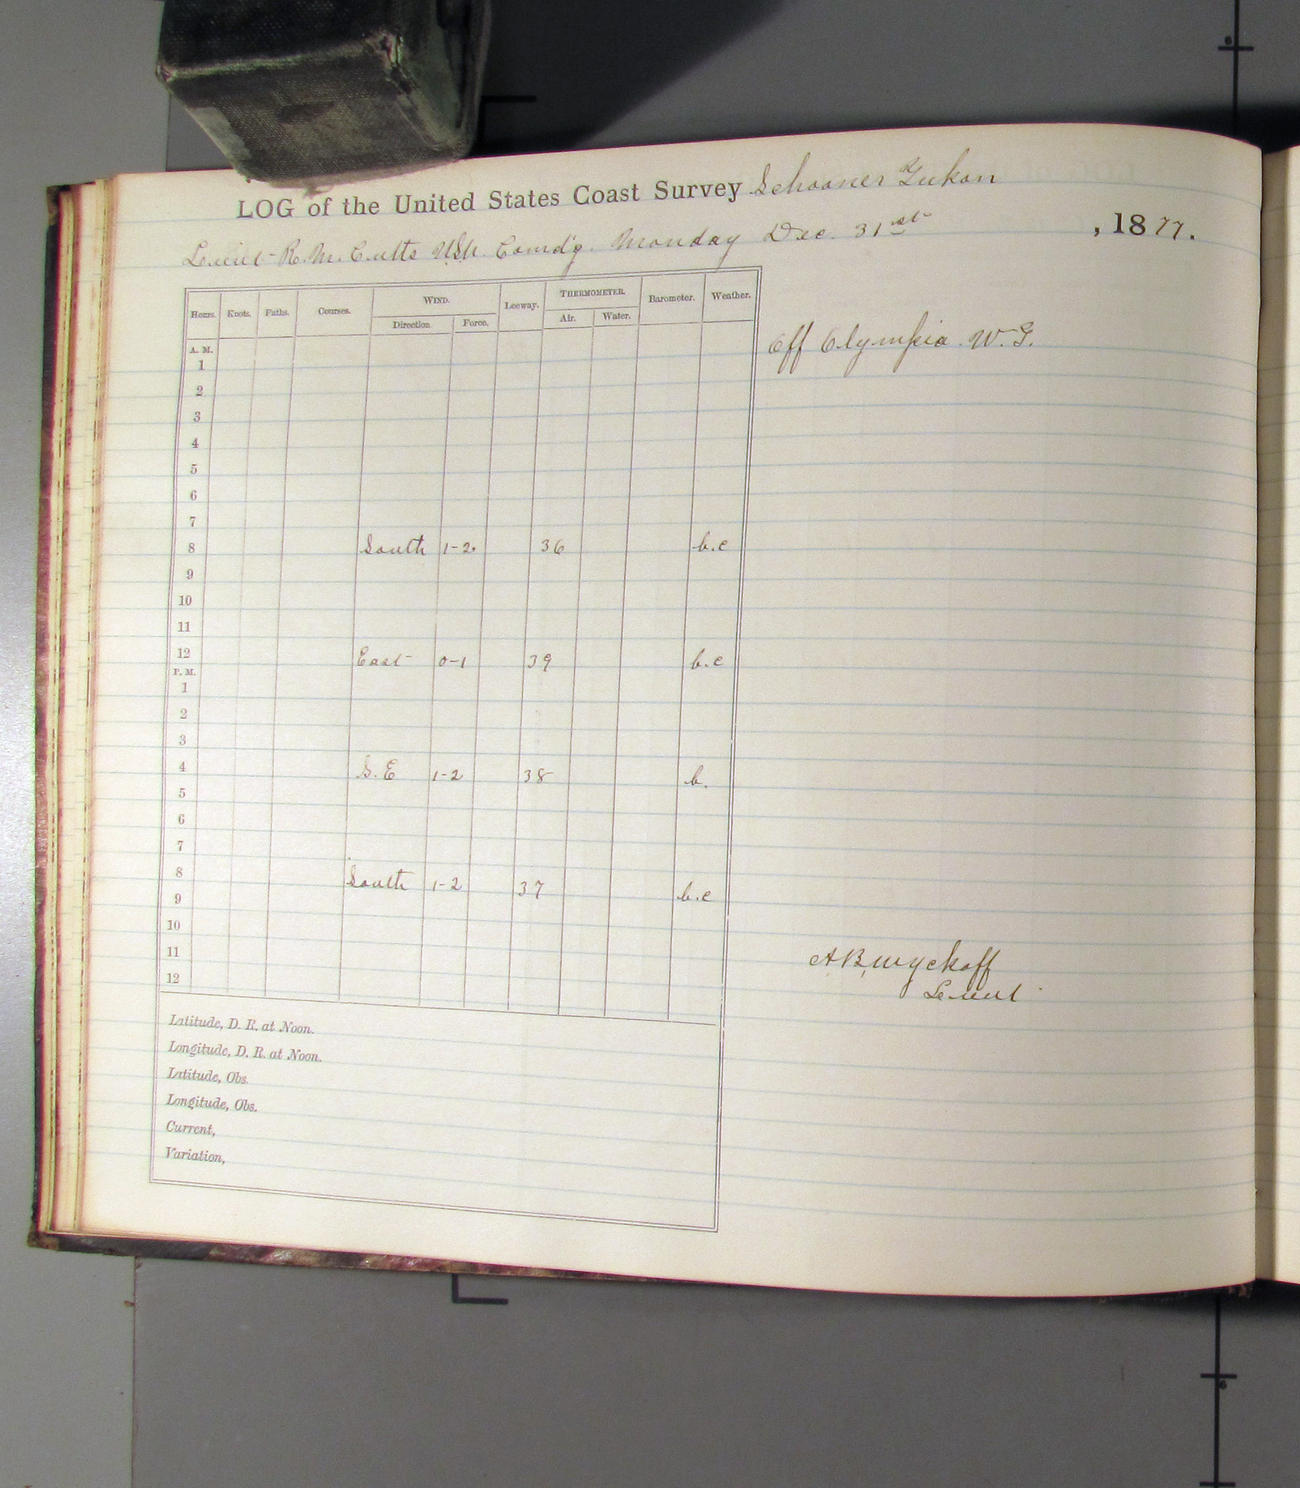 LOG of the United States Coast Survey Schooner Yukon
Lieut R. M. Cutts USN. Comd'g. Monday Dec. 31st , 1877.
Hours. Knots. Faths. Courses. WIND. Leeway. THERMOMETER. Barometer. Weather.
Direction. Force. Air. Water.
A. M.
Off Olympia W. T.
1
2
3
4
5
6
7
8 South 1-2. 36 b.c
9
10
11
12 East 0-1 39 b.c
P. M.
1
2
3
4 S.E 1-2 38 b.
5
6
7
8 South 1-2 37 b.c
9
10
11
12
A B Wyckoff
Lieut
Latitude, D. R. at Noon.
Longitude, D. R. at Noon.
Latitude, Obs.
Longitude, Obs.
Current,
Variation,